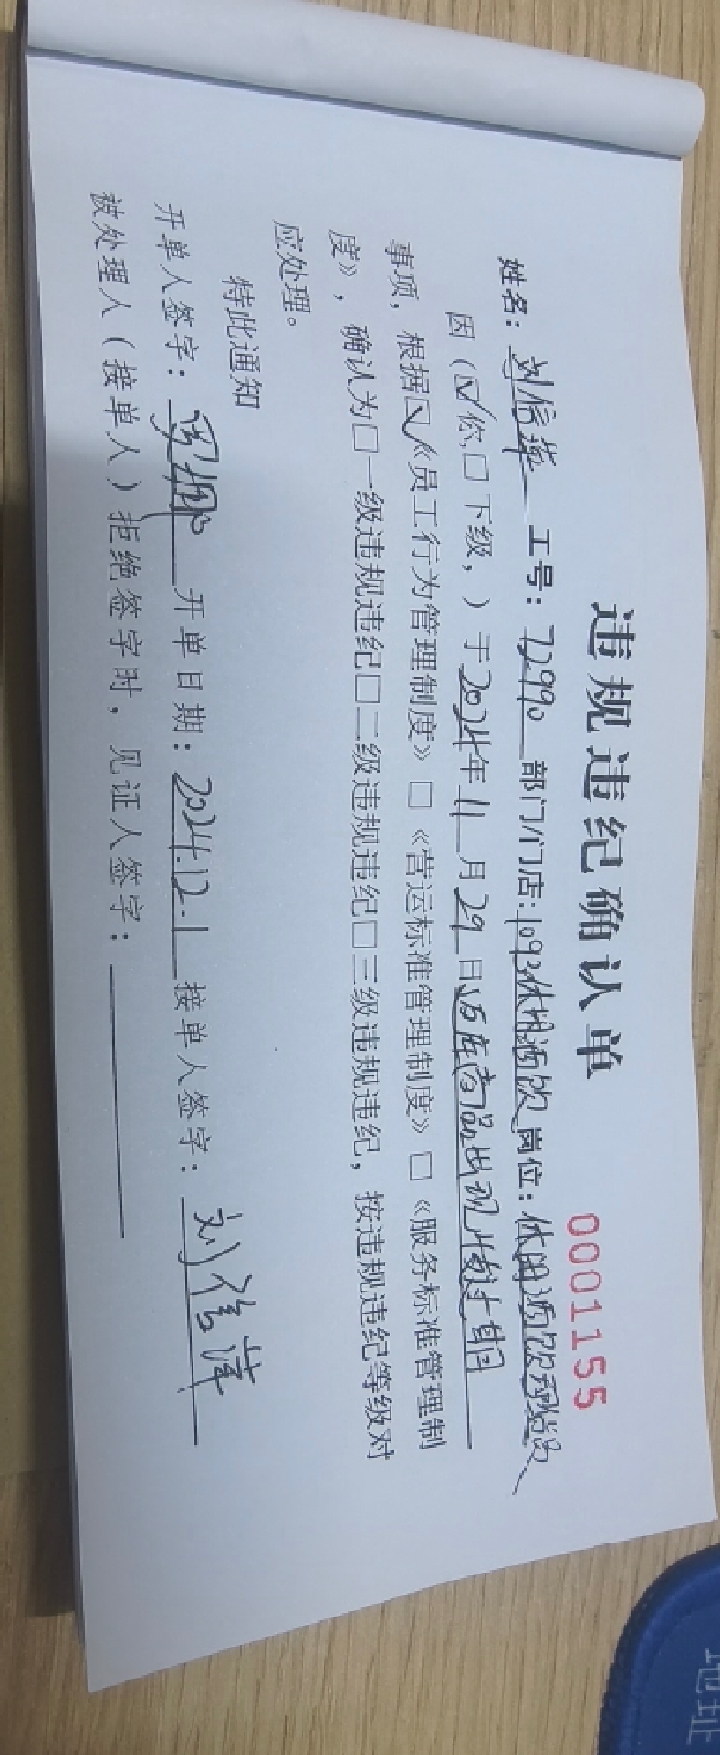 违规违纪确认单
0001155
姓名：刘信 工号：72990 部门/门店：1092休闲酒饮 岗位：休闲酒饮
因（☑你，□下级，）于2024年11月29日 商品出现
事项，根据☑《员工行为管理制度》□《营运标准管理制度》□《服务标准管理制
度》，确认为□一级违规违纪□二级违规违纪□三级违规违纪，按违规违纪等级对
应处理。
特此通知
开单人签字： 开单日期：2024.12.1 接单人签字：刘信
被处理人（接单人）拒绝签字时，见证人签字：
地址